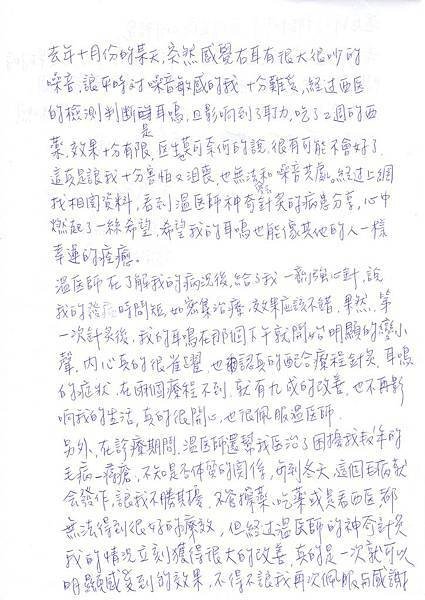 去年十月份的某天，突然感覺右耳有很大很吵的
噪音，讓平時對噪音敏感的我十分難受，經過西医
的檢測判斷是耳鳴，且影响到了耳力，吃了2週的西
薬，效果十分有限，医生莫可奈何的說，很有可能不會好了.
這真是讓我十分害怕又沮喪，也無法和噪音共處。經过上網
找相關資料，看到温医師神奇針灸的病患分享，心中
燃起了一絲希望，希望我的耳鳴也能像其他的人一樣
幸運的痊癒。
温医師在了解我的病况後，給了我一劑強心針，說
我的發病時間短，如密集治療，效果應該不錯，果然，第
一次針灸後，我的耳鳴在那個下午就開始明顯的變小
聲，内心真的很雀躍，也認真的配合療程針灸，耳鳴
的症狀，在兩個療程不到，就有九成的改善，也不再影
响我的生活，真的很開心，也很佩服温医師.
另外，在診療期間，温医師還幫我医治了困擾我多年的
毛病—痔瘡，不知是否体質的関係，每到冬天，這個毛病就
會發作，讓我不勝其擾，不管擦薬、吃薬或是看西医都
無法得到很好的療效，但經过温医師的神奇針灸
我的情况立刻獲得很大的改善，真的是一次就可以
明顯感受到的效果，不得不讓我再次佩服与感謝